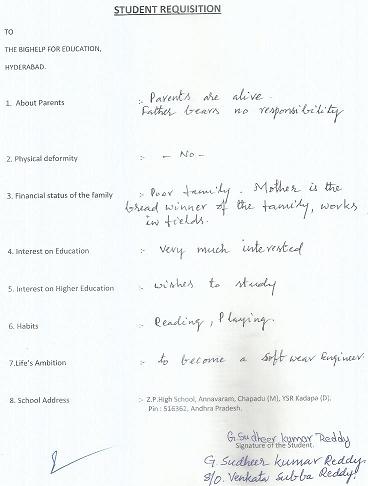 STUDENT REQUISITION
TO
THE BIGHELP FOR EDUCATION,
HYDERABAD.
1. About Parents :- Parents are alive.
Father bears no responsibility
2. Physical deformity :- - No -
3. Financial status of the family :- Poor family. Mother is the
bread winner of the family, works
in fields.
4. Interest on Education :- very much interested
5. Interest on Higher Education :- wishes to study
6. Habits :- Reading, Playing.
7.Life's Ambition :- to become a soft wear Engineer.
8. School Address :- Z.P.High School, Annavaram, Chapadu (M), YSR Kadapa (D),
Pin : 516362, Andhra Pradesh.
G. Sudheer kumar Reddy
Signature of the Student.
G. Sudheer kumar Reddy.
S/O. Venkata Subba Reddy.